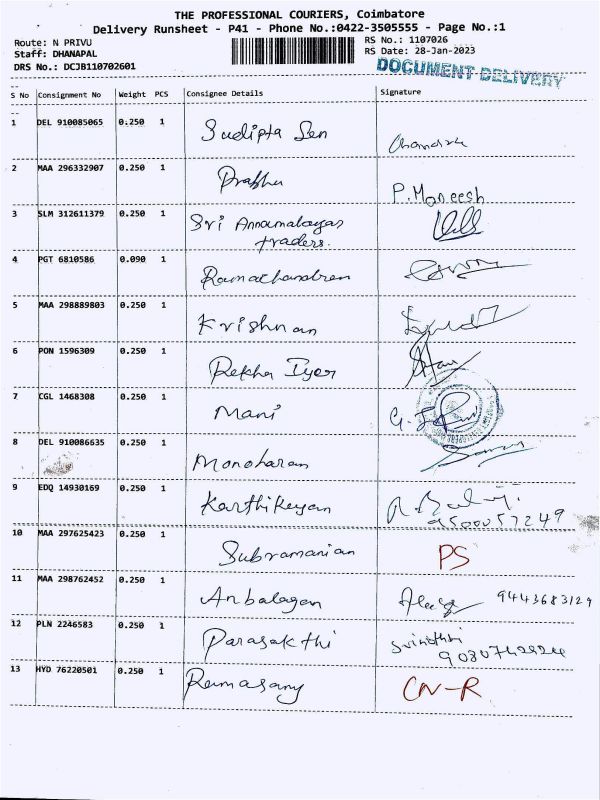 THE PROFESSIONAL COURIERS, Coimbatore
Delivery Runsheet - P41 - Phone No.:0422-3505555 - Page No.:1
Route: N PRIVU
Staff: DHANAPAL
DRS No.: DCJB110702601
RS No.: 1107026
RS Date: 28-Jan-2023
DOCUMENT DELIVERY
S No Consignment No Weight PCS Consignee Details Signature
1 DEL 910085065 0.250 1 Sudipta Sen Chandra
2 MAA 296332907 0.250 1 Prabhu P. Maneesh
3 SLM 312611379 0.250 1 Sri Annamalayar
traders.
4 PGT 6810586 0.090 1 Ramachandren
5 MAA 298889803 0.250 1 Krishnan
6 PON 1596309 0.250 1 Rekha Iyer
7 CGL 1468308 0.250 1 Mani
8 DEL 910086635 0.250 1 Monoharan
9 EDQ 14930169 0.250 1 Karthikeyan
9500057249
10 MAA 297625423 0.250 1 Subramanian PS
11 MAA 298762452 0.250 1 Anbalagan 9443683129
12 PLN 2246583 0.250 1 Parasakthi
13 HYD 76220501 0.250 1 Ramasamy CN-R